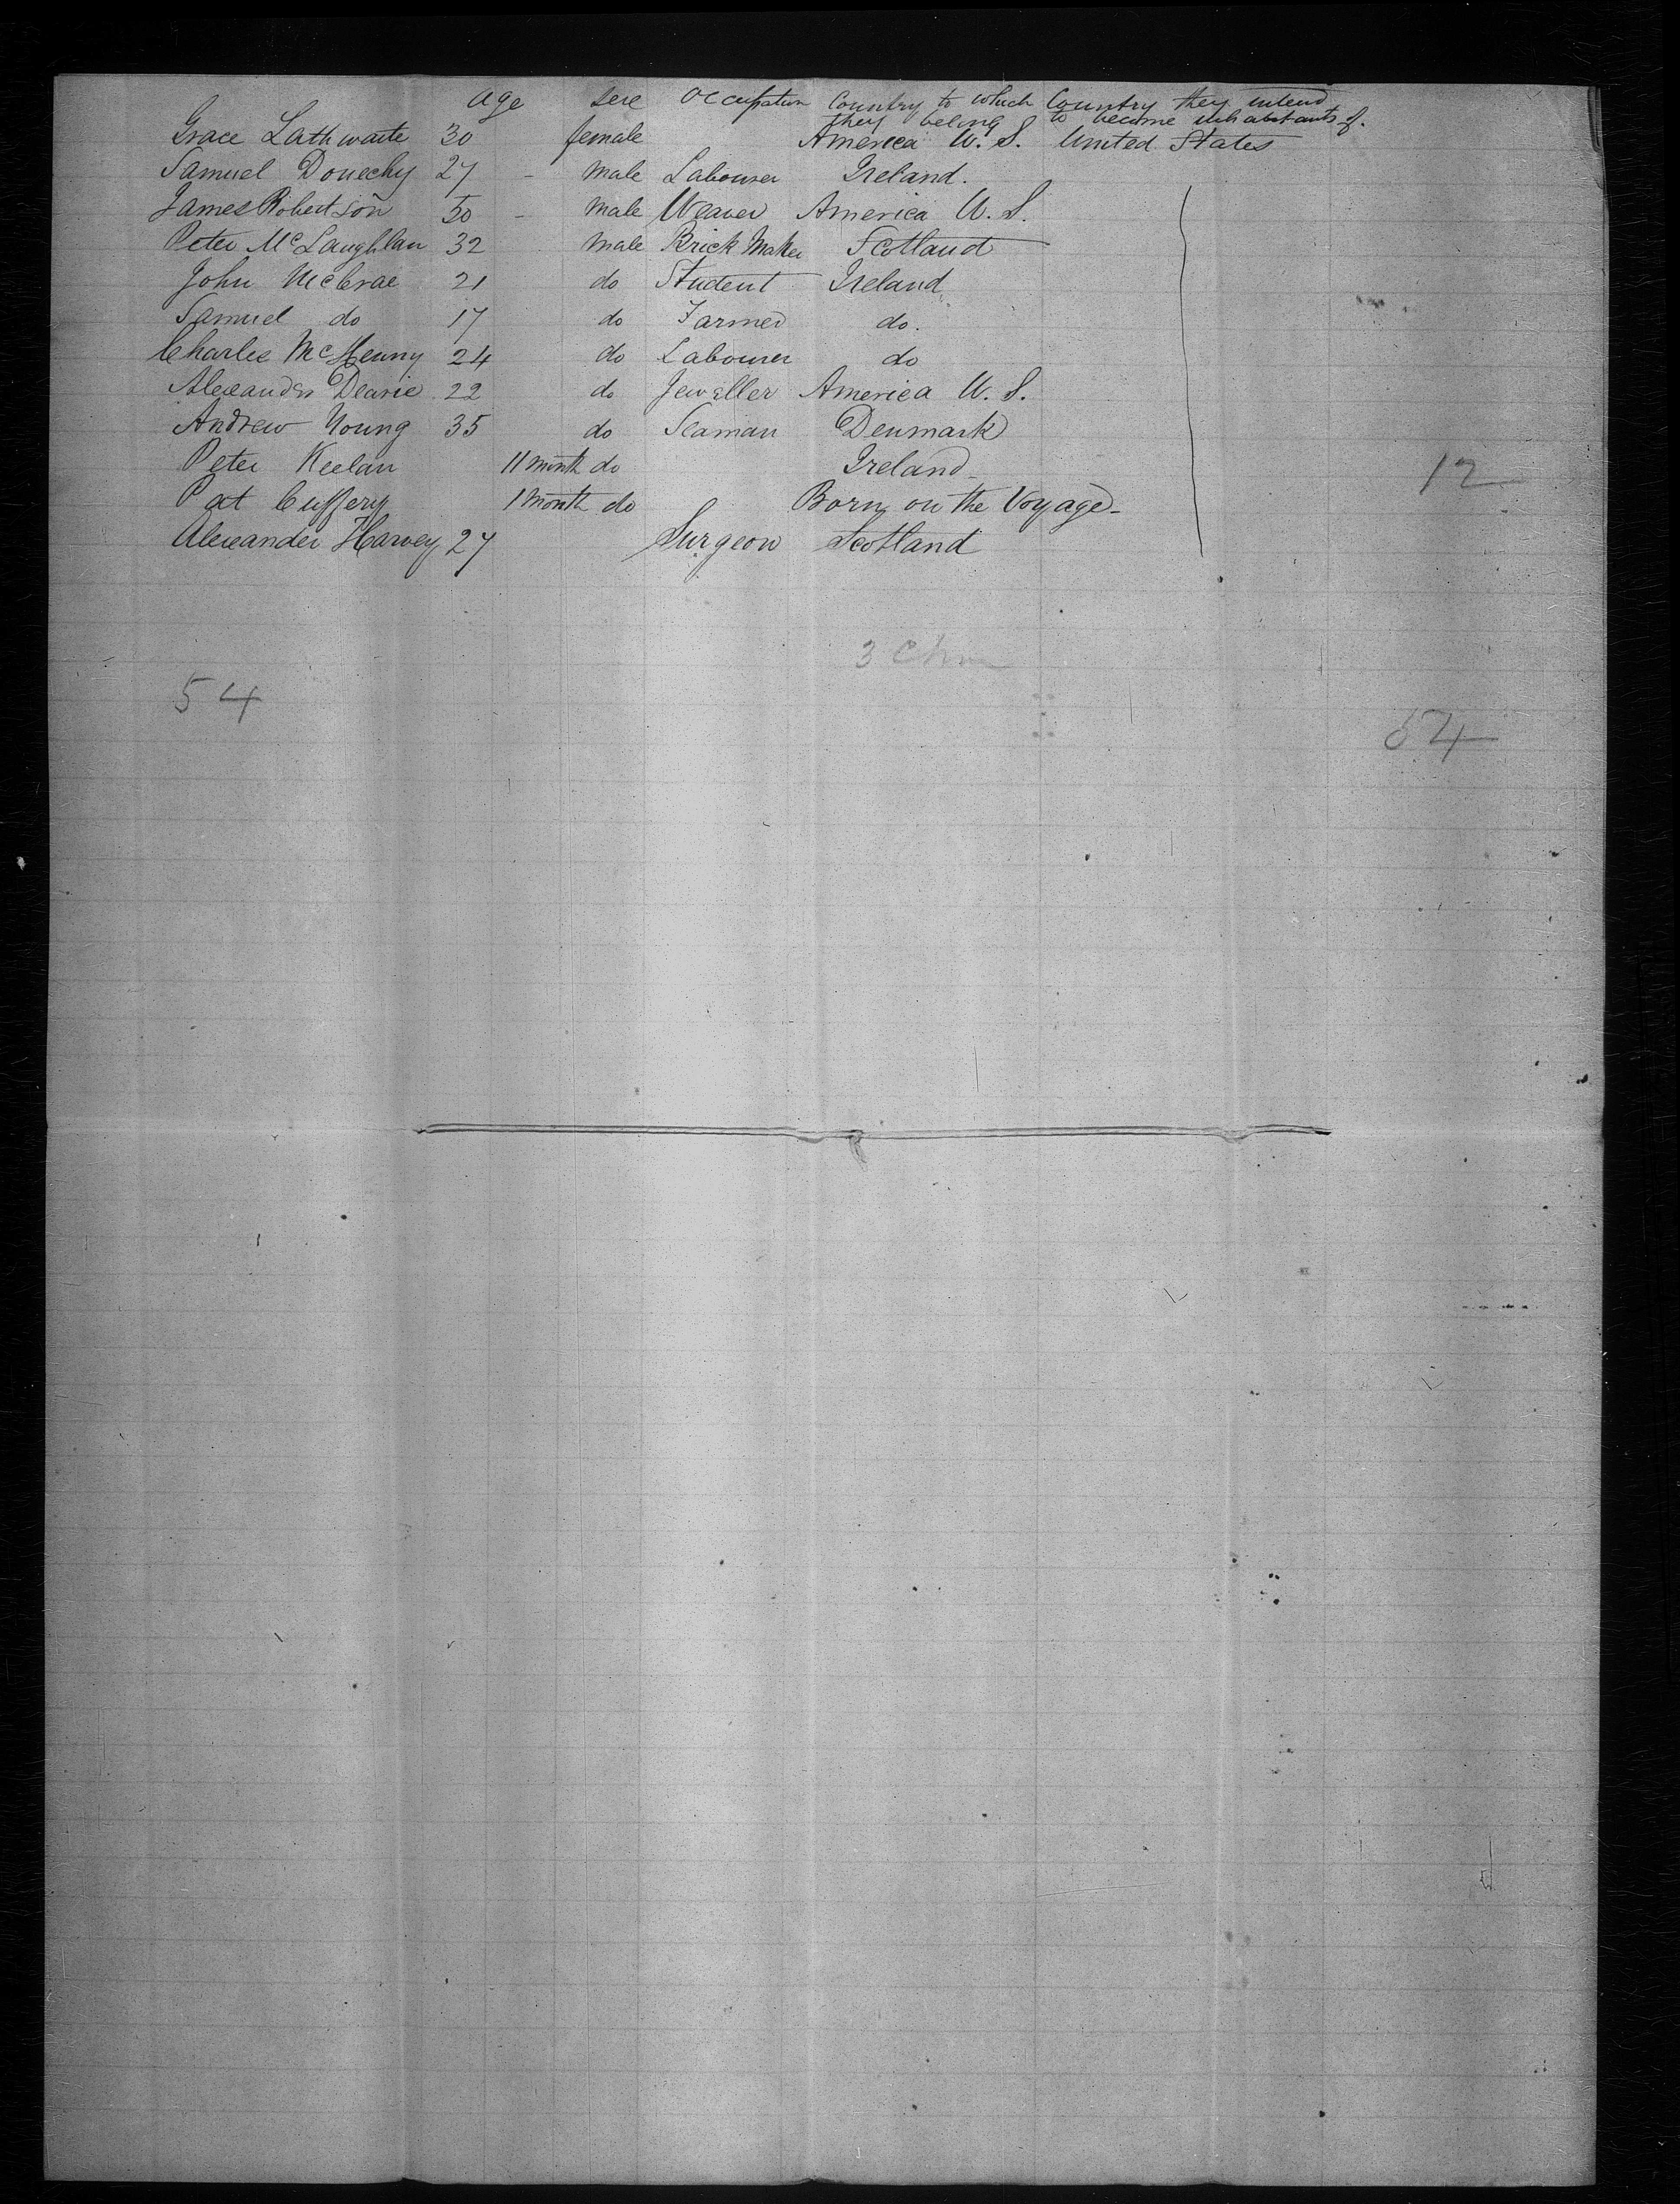 Age Sex Occupation Country to which Country they intend
they belong to become inhabitants of.
Grace Lathwaite 30 female America U. S. United States
Samuel Donechy 27 - Male Labourer Ireland.
James Robertson 50 - Male Weaver America U. S.
Peter McLaughlan 32 Male Brick Maker Scotland
John McCrae 21 do Student Ireland
Samuel do 17 do Farmer do.
Charles McHenny 24 do Labourer do
Alexander Dearie 22 do Jeweller America U. S.
Andrew Young 35 do Seaman Denmark
Peter Keelan 11 month do Ireland
12
Pat Cuffery 1 month do Born on the Voyage -
Alexander Harvey 27 Surgeon Scotland
3
54
54